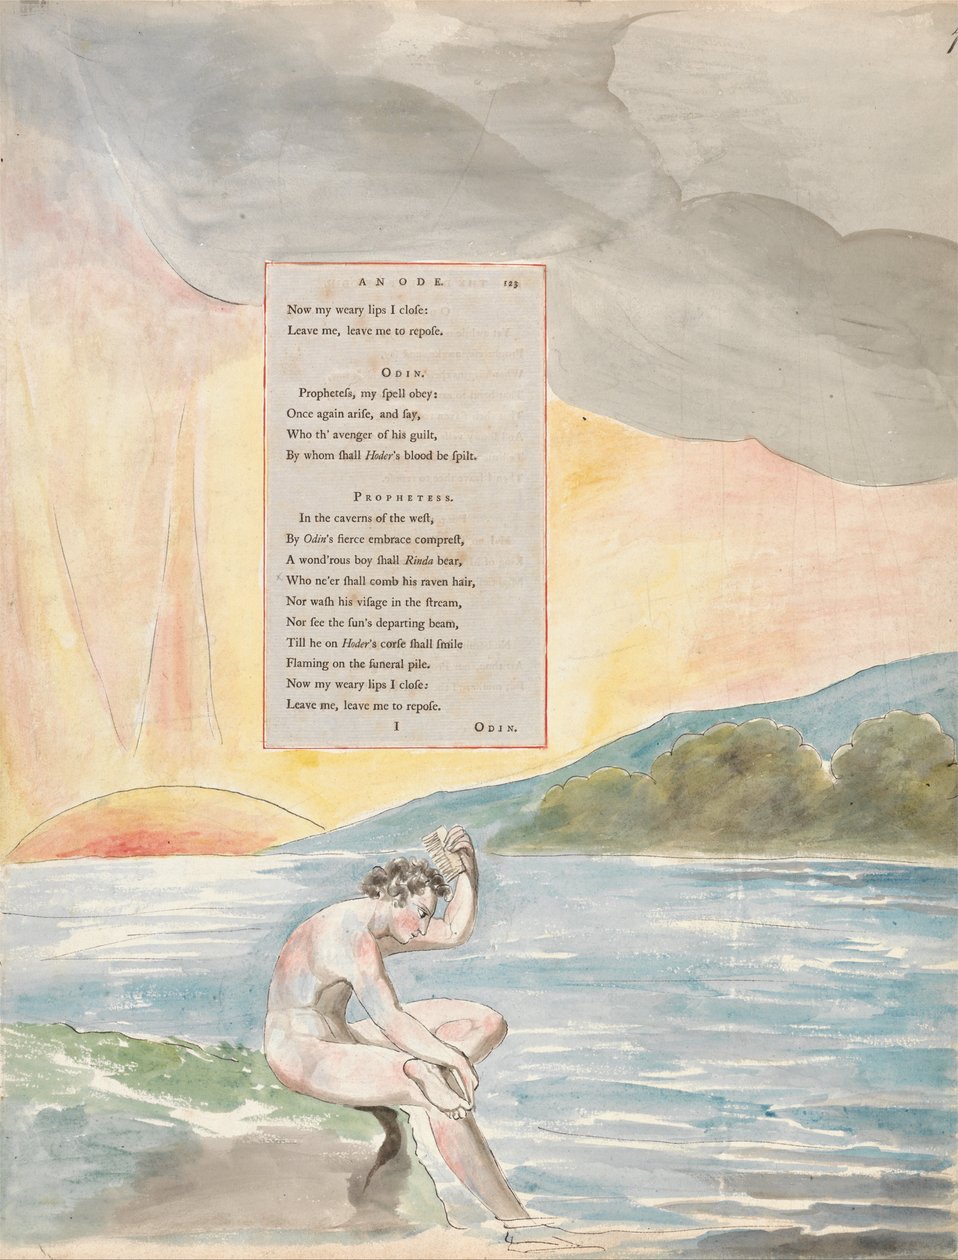 AN ODE. 123
Now my weary lips I cloſe:
Leave me, leave me to repoſe.
ODIN.
Propheteſs, my ſpell obey:
Once again ariſe, and ſay,
Who th' avenger of his guilt,
By whom ſhall Hoder's blood be ſpilt.
PROPHETESS.
In the caverns of the weſt,
By Odin's fierce embrace compreſt,
A wond'rous boy ſhall Rinda bear,
Who ne'er ſhall comb his raven hair,
Nor waſh his viſage in the ſtream,
Nor ſee the ſun's departing beam,
Till he on Hoder's corſe ſhall ſmile
Flaming on the funeral pile.
Now my weary lips I cloſe:
Leave me, leave me to repoſe.
I ODIN.